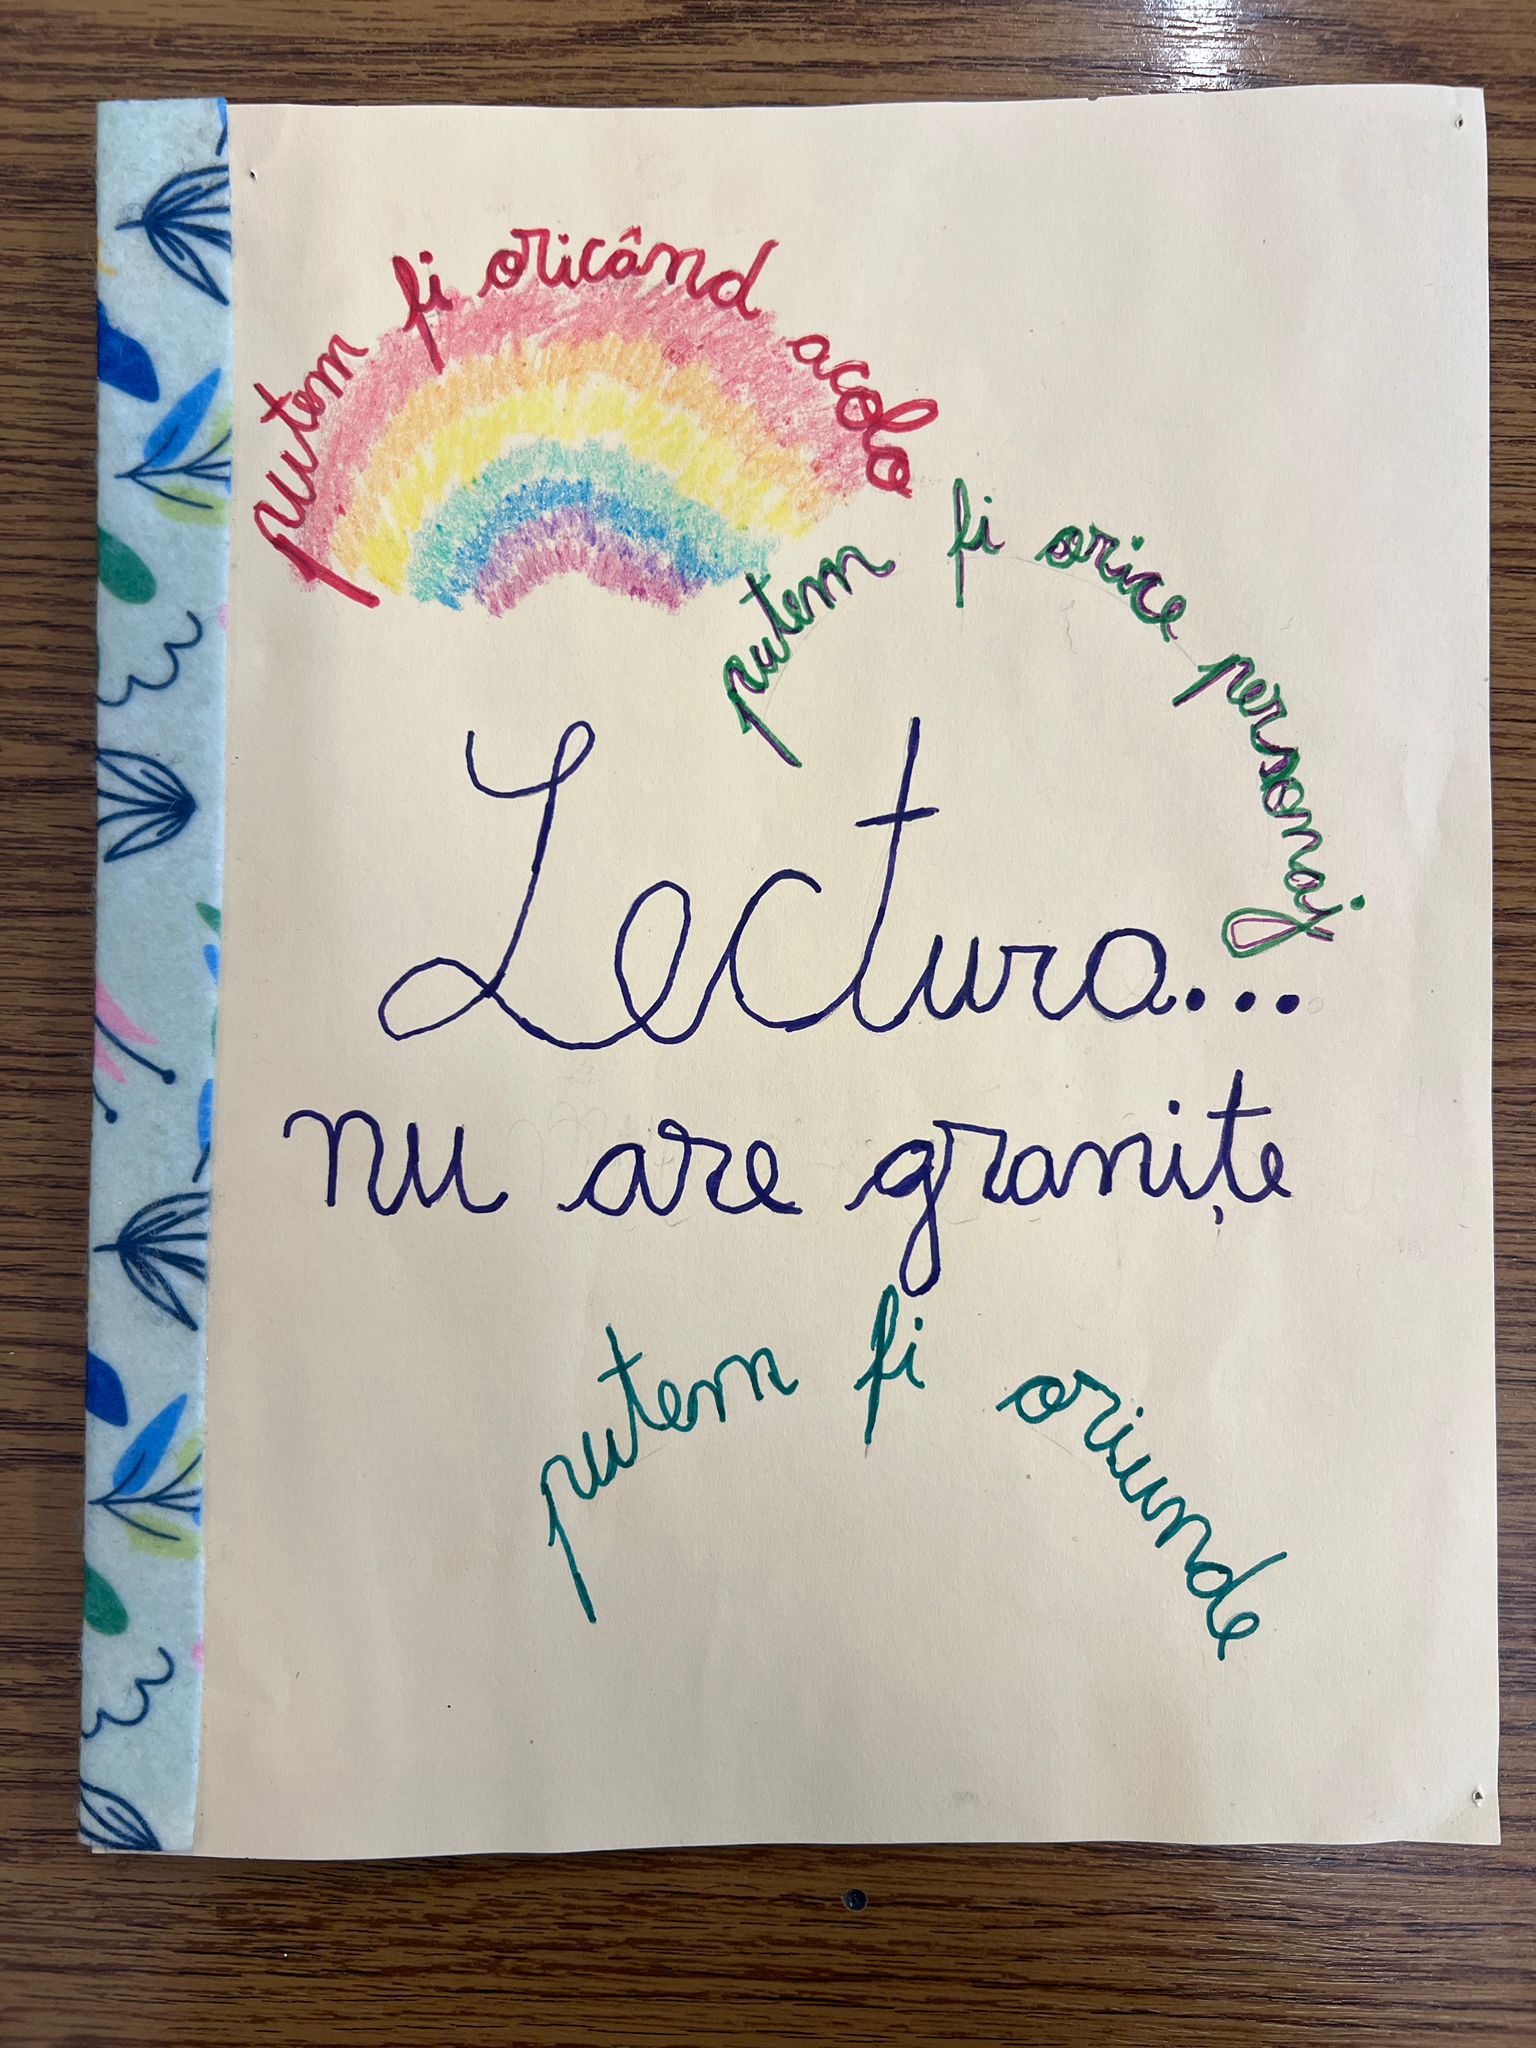 putem fi oricând acolo
putem fi orice personaj
Lectura...
nu are granițe
putem fi oriunde